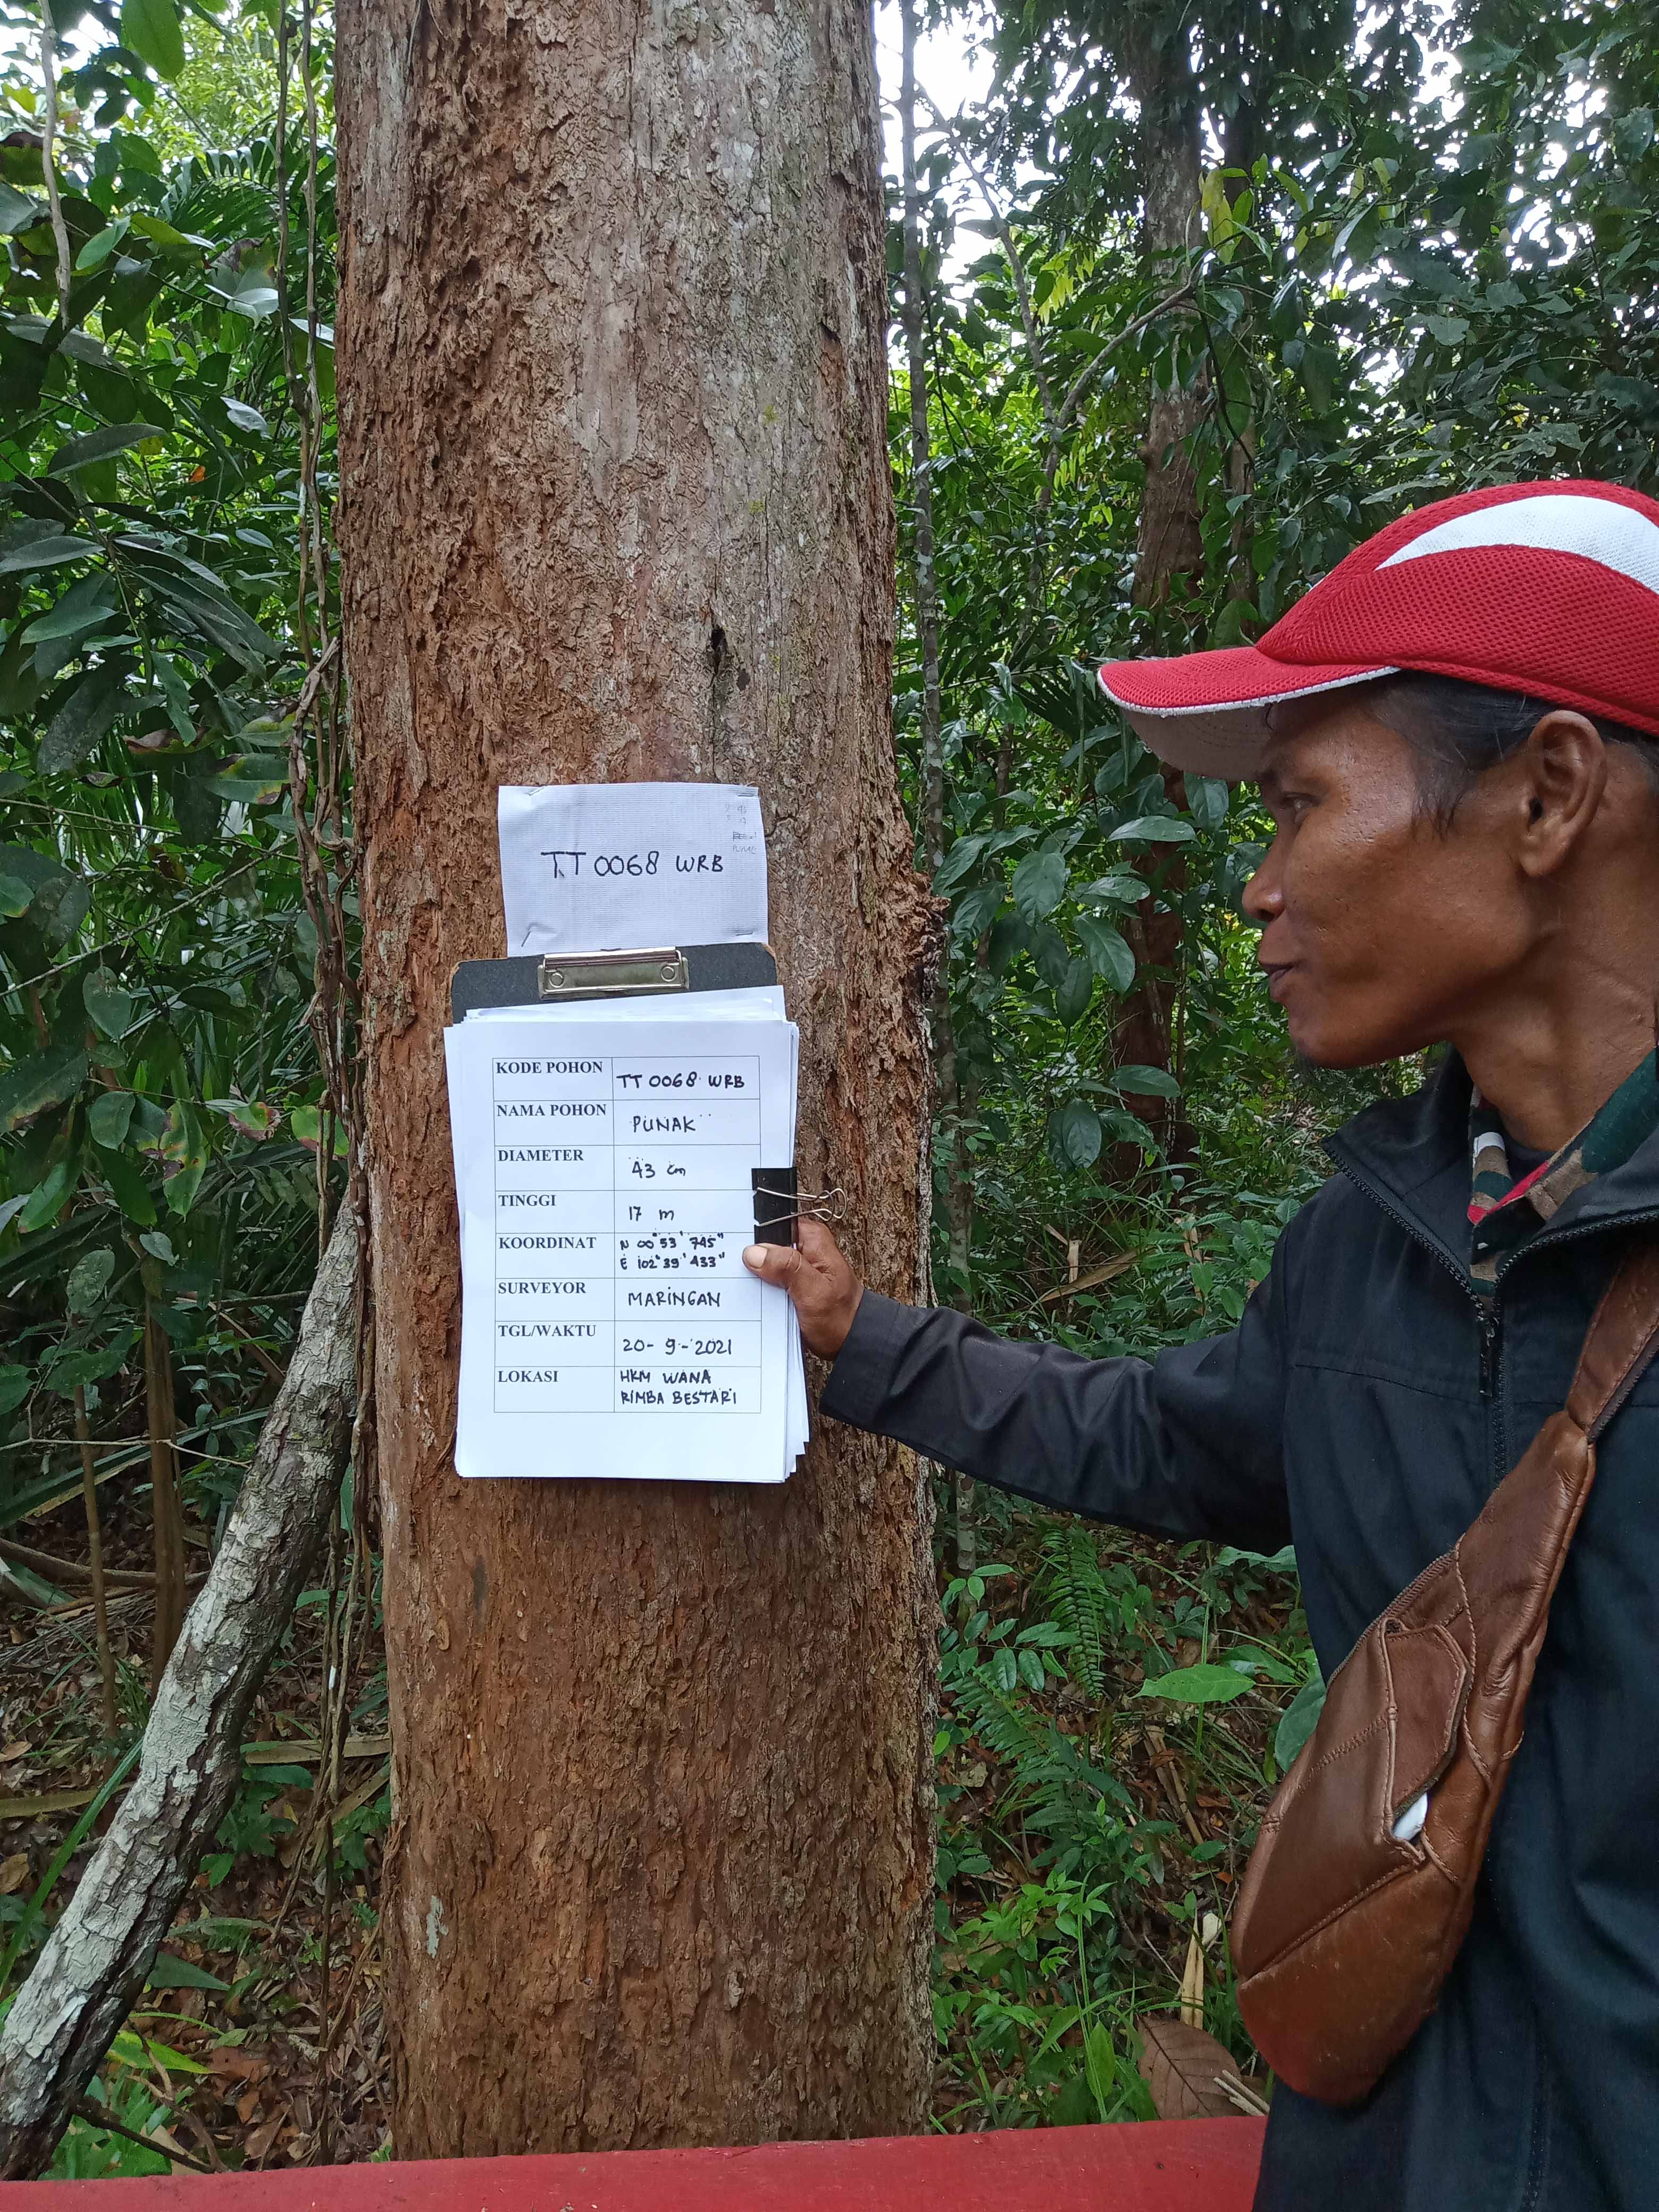 TT 0068 WRB
KODE POHON TT 0068 WRB
NAMA POHON PUNAK
DIAMETER 43 cm
TINGGI 17 m
KOORDINAT N 00°53'745"
E 102°39'433"
SURVEYOR MARINGAN
TGL/WAKTU 20-9-2021
LOKASI HKM WANA
RIMBA BESTARI